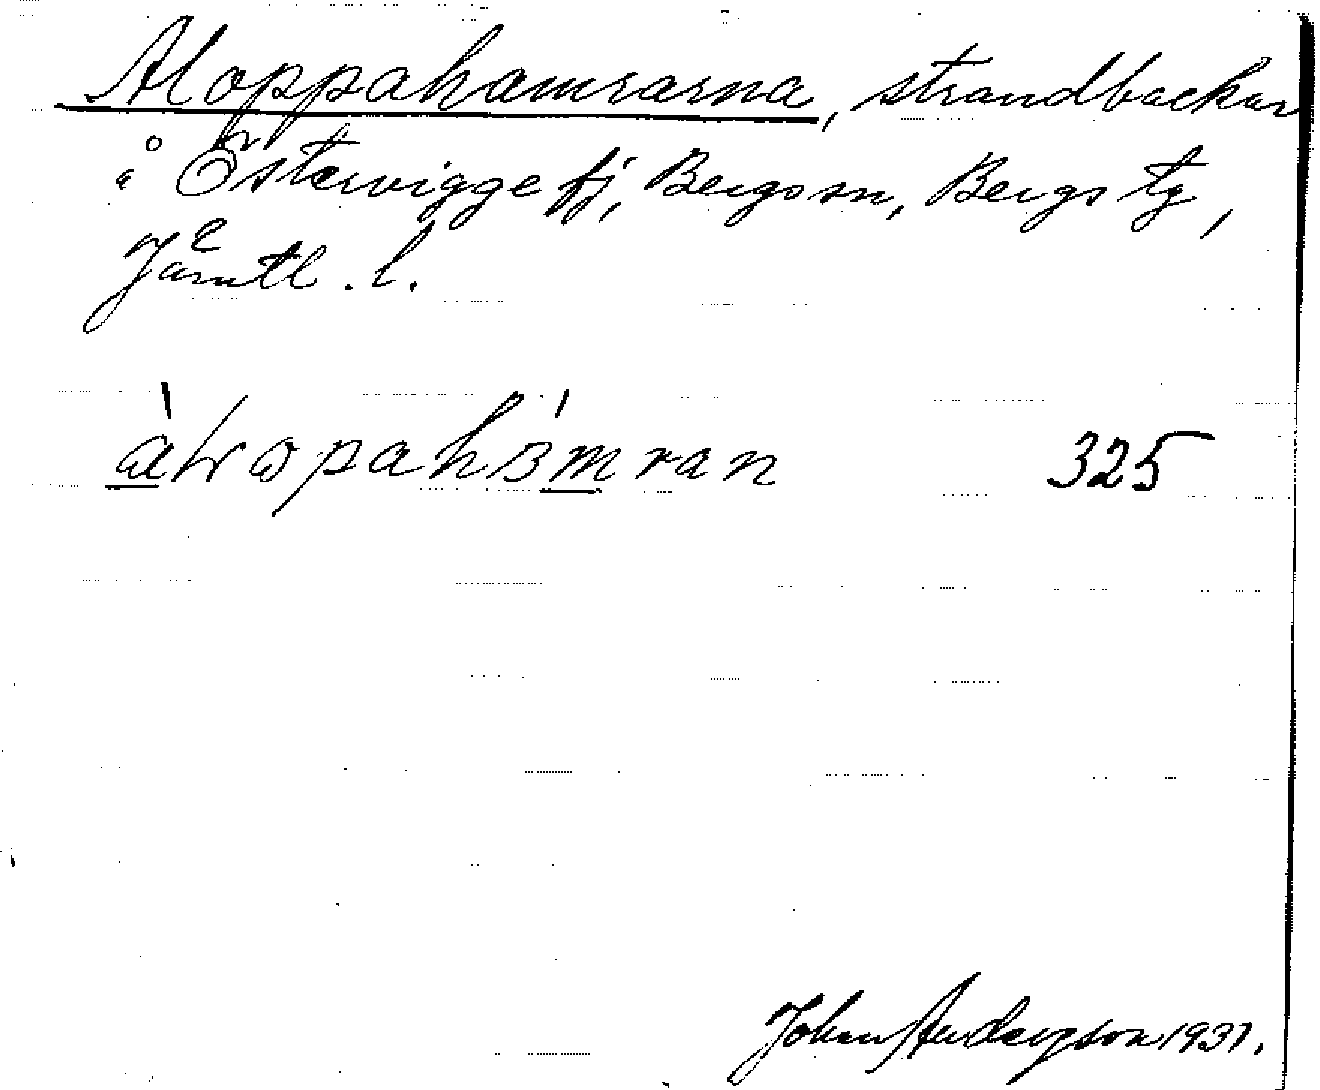 Aloppahamrarna, strandbackar
å Östervigge fj, Bergs sn, Bergs tg,
Jämtl. l.
325
Johan Anderson 1931.